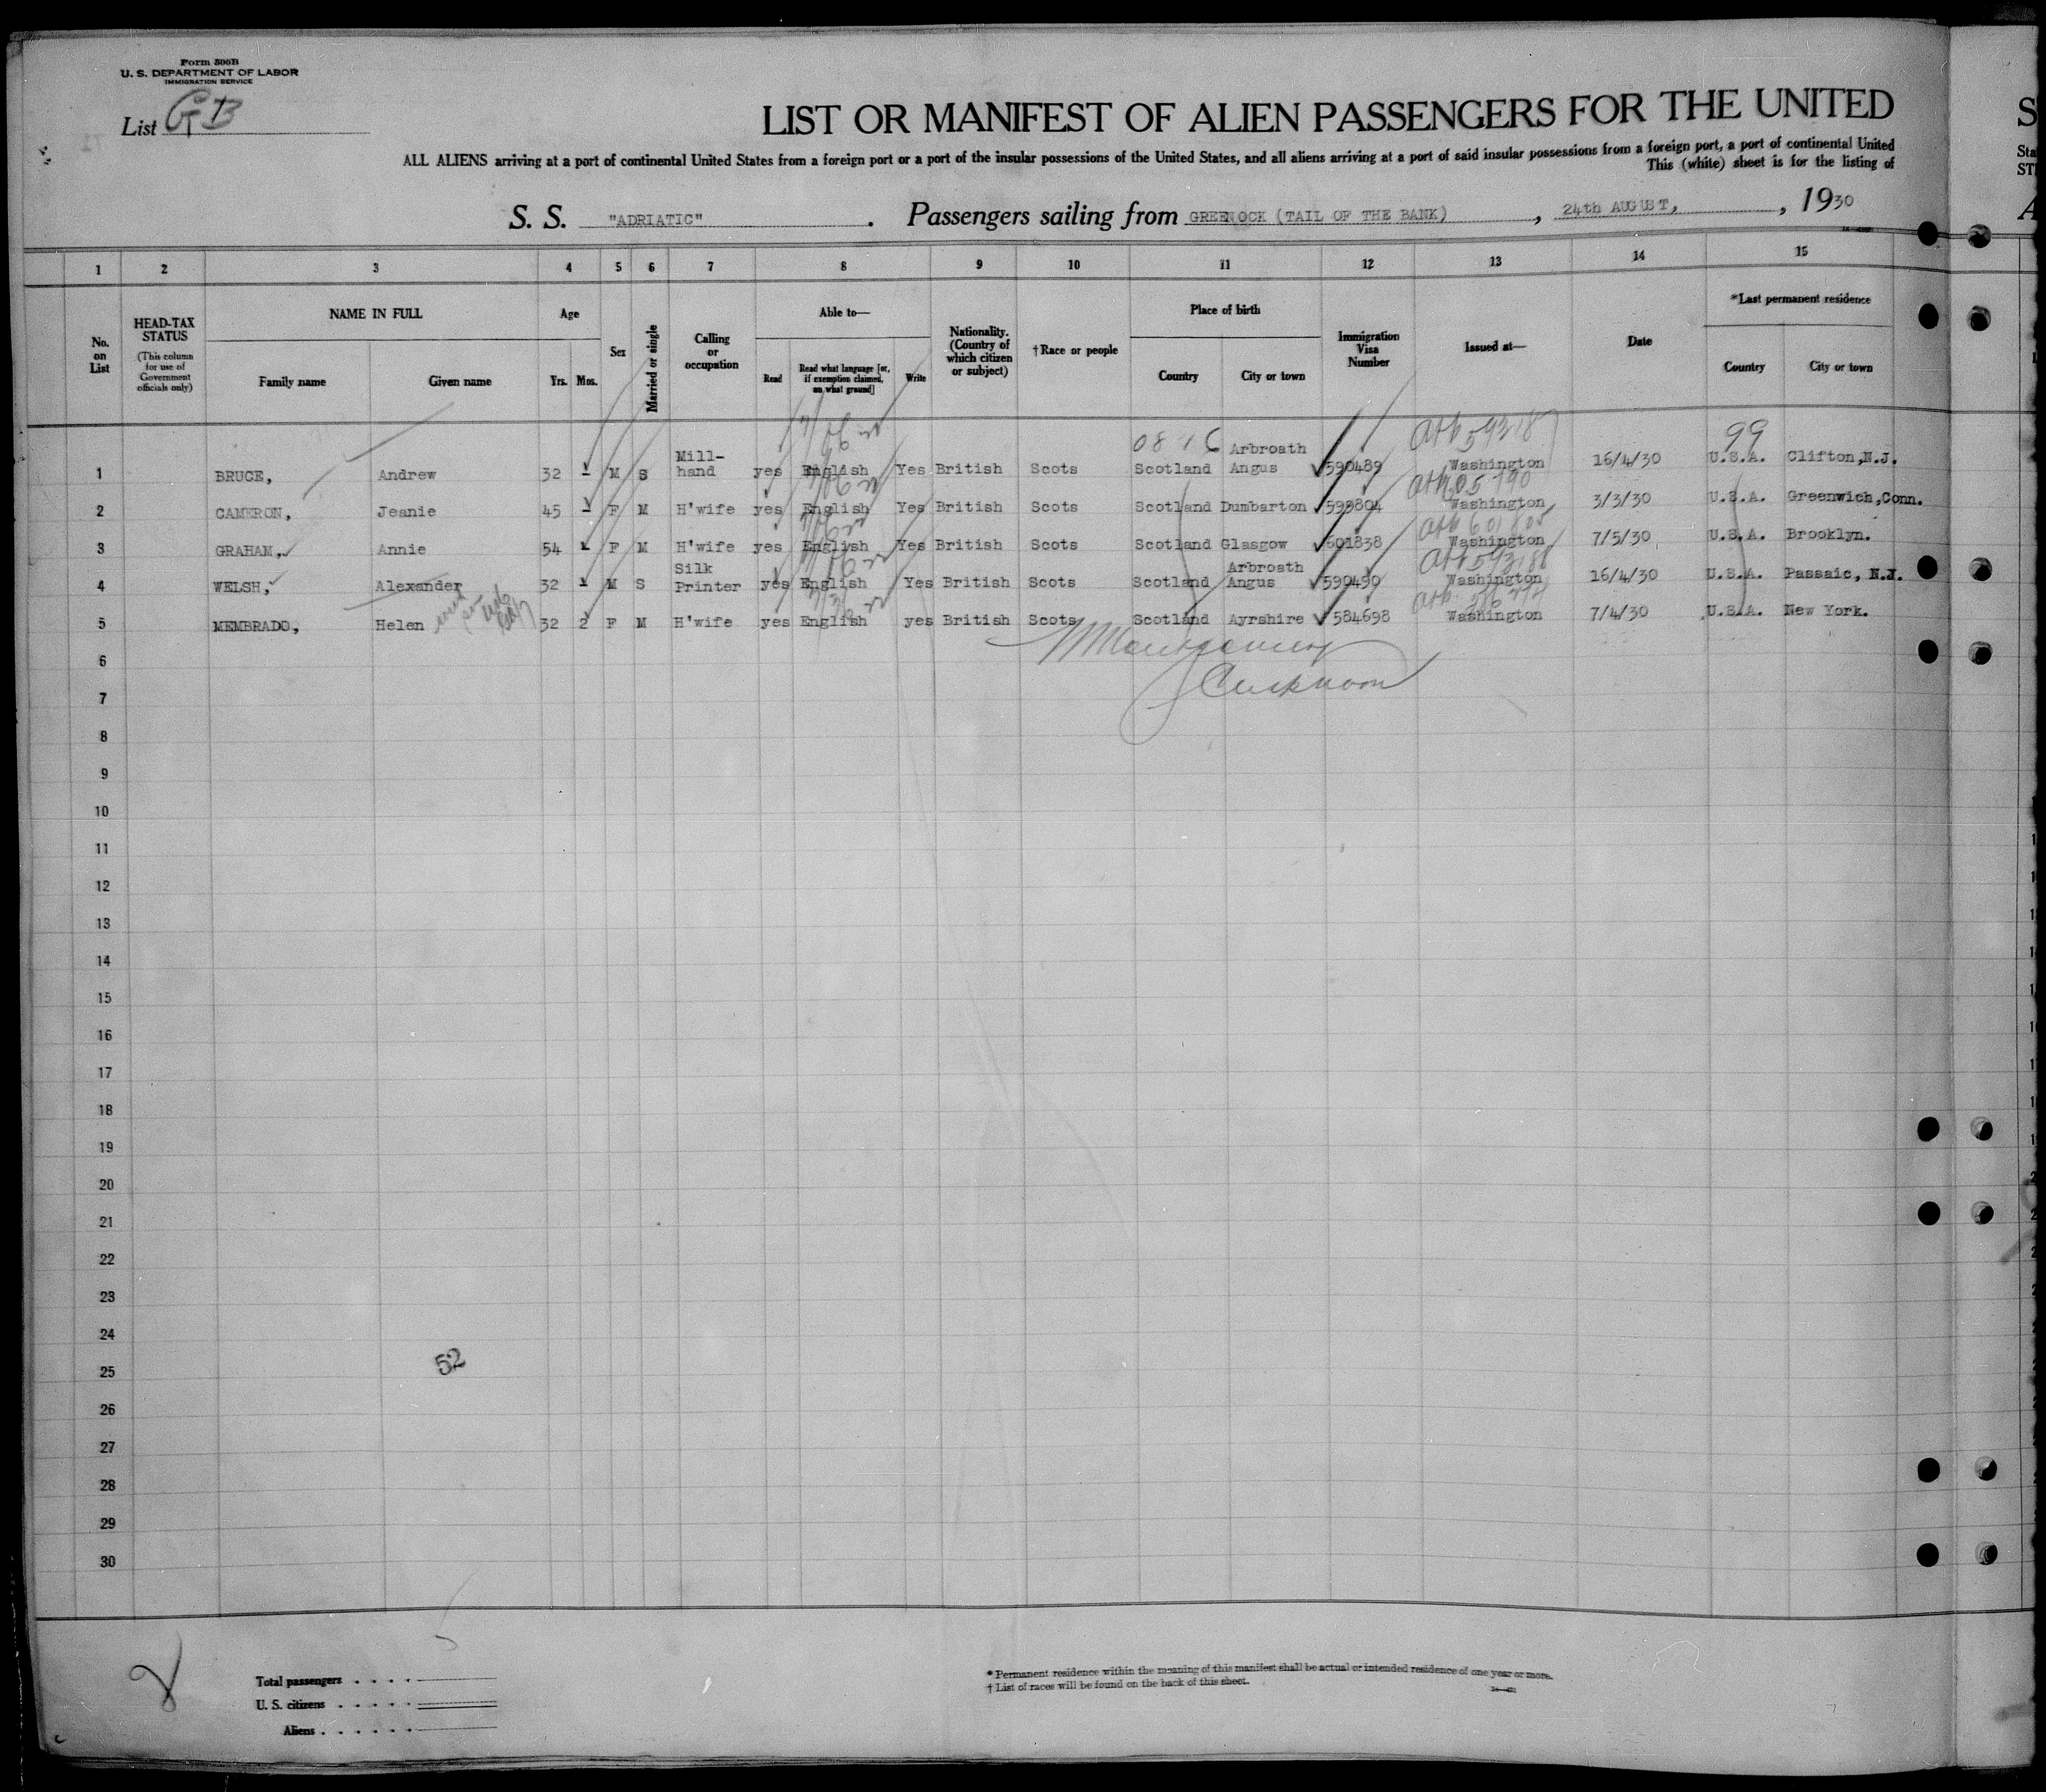 Form 500B
U. S. DEPARTMENT OF LABOR
IMMIGRATION SERVICE
List GB
LIST OR MANIFEST OF ALIEN PASSENGERS FOR THE UNITED
ALL ALIENS arriving at a port of continental United States from a foreign port or a port of the insular possessions of the United States, and all aliens arriving at a port of said insular possessions from a foreign port, a port of continental United
This (white) sheet is for the listing of
S. S. "ADRIATIC". Passengers sailing from GREENOCK (TAIL OF THE BANK), 24th AUGUST, , 1930
1 2 3 4 5 6 7 8 9 10 11 12 13 14 15
No. on List
HEAD-TAX STATUS
(This column for use of Government officials only)
NAME IN FULL
Family name Given name
Age
Yrs. Mos.
Sex
Married or single
Calling or occupation
Able to—
Read
Read what language [or, if exemption claimed, on what ground]
Write
Nationality. (Country of which citizen or subject)
†Race or people
Place of birth
Country City or town
Immigration Visa Number
Issued at—
Date
*Last permanent residence
Country City or town
0816 99
1 BRUCE, Andrew 32 - M S Mill-hand yes English Yes British Scots Scotland Arbroath Angus 590489 Washington 16/4/30 U.S.A. Clifton,N.J.
2 CAMERON, Jeanie 45 - F M H'wife yes English Yes British Scots Scotland Dumbarton 599804 Washington 3/3/30 U.S.A. Greenwich,Conn.
3 GRAHAM, Annie 54 F M H'wife yes English Yes British Scots Scotland Glasgow 601838 Washington 7/5/30 U.S.A. Brooklyn.
4 WELSH, Alexander 32 M S Silk Printer yes English Yes British Scots Scotland Arbroath Angus 590490 Washington 16/4/30 U.S.A. Passaic, N.J.
5 MEMBRADO, Helen 32 2 F M H'wife yes English yes British Scots Scotland Ayrshire 584698 Washington 7/4/30 U.S.A. New York.
6
7
8
9
10
11
12
13
14
15
16
17
18
19
20
21
22
23
24
25
52
26
27
28
29
30
Total passengers . . . .
U. S. citizens . . . . .
Aliens . . . . . .
* Permanent residence within the meaning of this manifest shall be actual or intended residence of one year or more.
† List of races will be found on the back of this sheet.